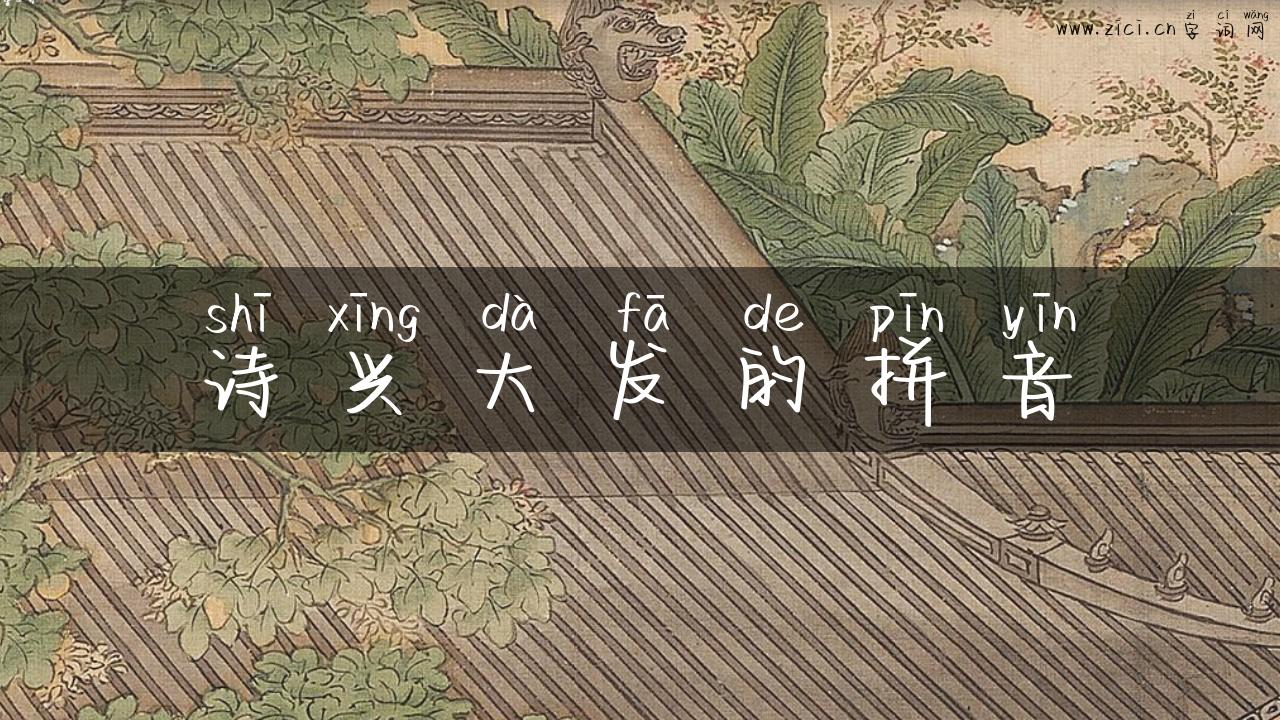 zì cí wǎng
www.zici.cn 字词网
shī xīng dà fā de pīn yīn
诗兴大发的拼音